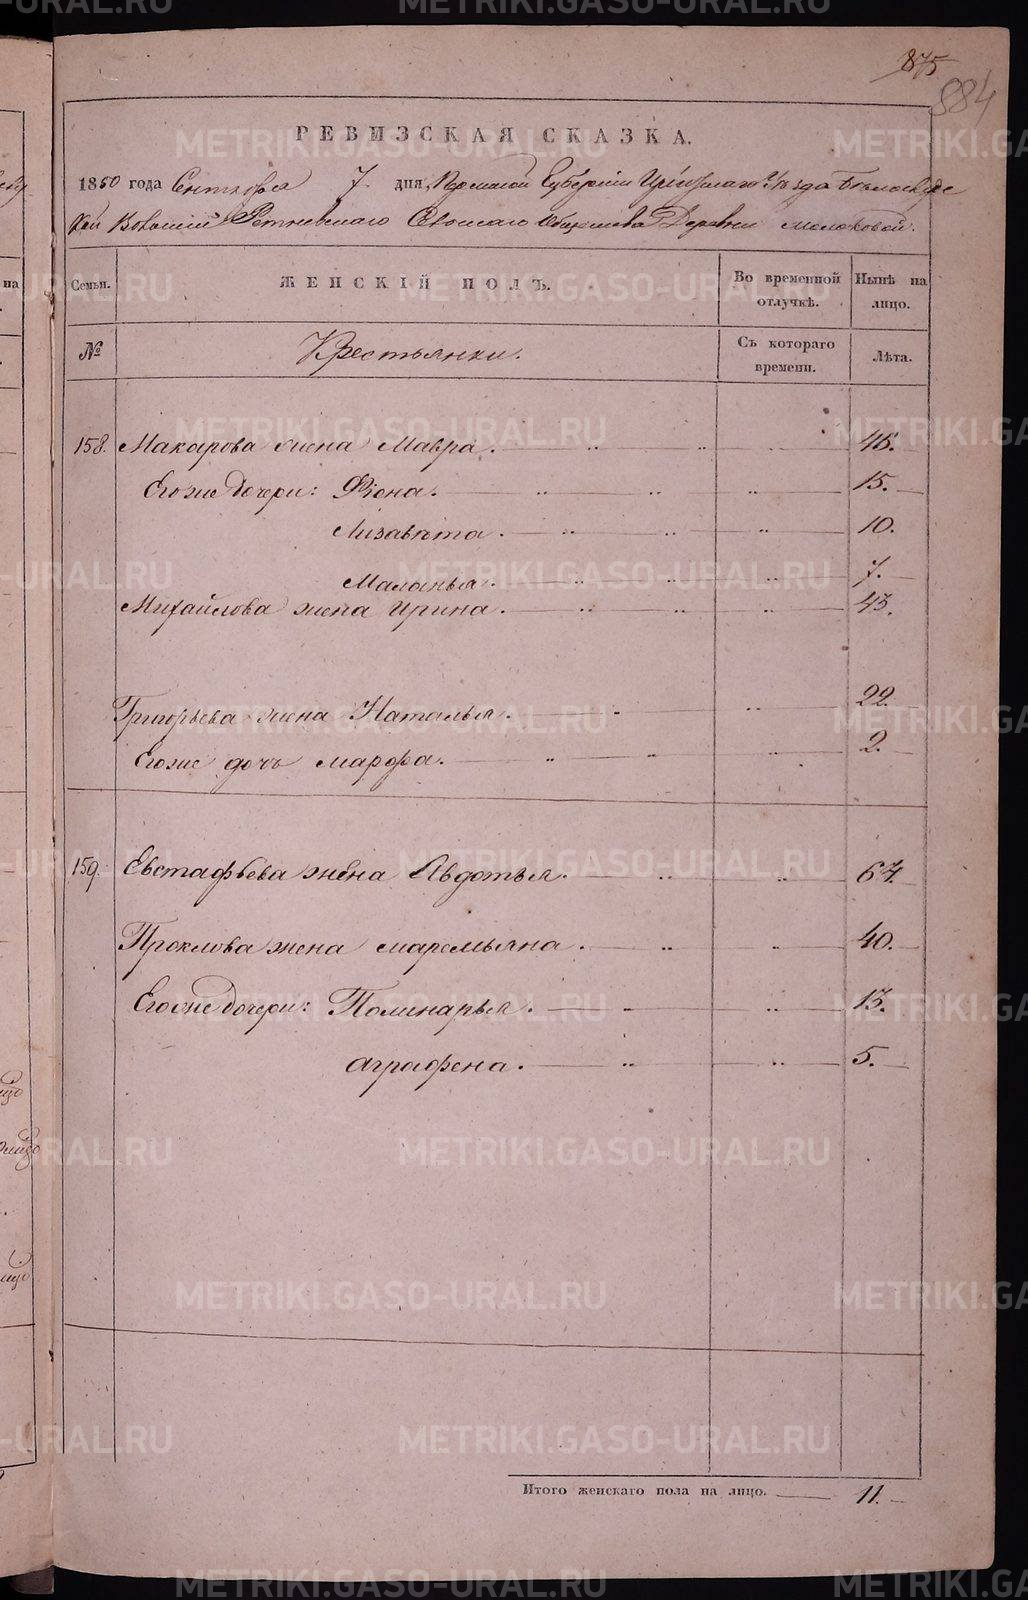 875
884
РЕВИЗСКАЯ СКАЗКА.
1850 года Сентября 7 дня Пермской Губернiи Ирбитскаго Уѣзда Бѣлослудс
кой Волости Ретневскаго Сельскаго Общества Деревни Молоковой.
Семьи. ЖЕНСКIЙ ПОЛЪ. Во временной отлучкѣ. Нынѣ на лицо.
№ Крестьянки. Съ котораго времени. Лѣта.
158. Макарова жена Мавра. 46.
Егоже дочери: Фiона. 15.
Лизавѣта. 10.
Маланья. 7.
Михайлова жена Ирина. 43.
Григорьева жена Наталья. 22.
Егоже дочь Марфа. 2.
159. Евстафьева жена Авдотья. 64.
Проклова жена Маремьяна. 40.
Егоже дочери: Полинарья. 13.
Аграфена. 5.
Итого женскаго пола на лицо. 11.
METRIKI.GASO-URAL.RU